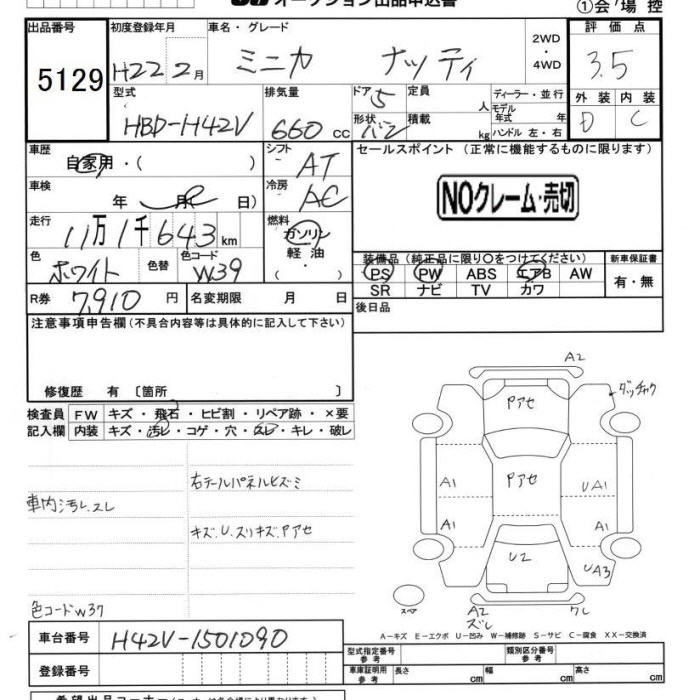 オークション出品申込書
①会場控
出品番号 初度登録年月 車名・グレード 評価点
5129 H22 2月 ミニカ ナッティ 2WD・4WD 3.5
型式 排気量 ドア 5 定員 人 ディーラー・並行 外装 内装
モデル年式 年
HBD-H42V 660cc 形状 バン 積載 kg ハンドル 左・右 D C
車歴 自家用・( ) シフト AT セールスポイント(正常に機能するものに限ります)
車検 年 月 日) 冷房 AC NOクレーム・売切
走行 11万1千643km 燃料 ガソリン
軽油・( )
色 ホワイト 色替 色コード W39 装備品(純正品に限り○をつけてください) 新車保証書
PS PW ABS エアB AW 有・無
R券 7,910円 名変期限 月 日 SR ナビ TV カワ
注意事項申告欄(不具合内容等は具体的に記入して下さい) 後日品
修復歴 有〔箇所 〕
検査員 FW キズ・飛石・ヒビ割・リペア跡・×要
記入欄 内装 キズ・汚レ・コゲ・穴・スレ・キレ・破レ
右テールパネルヒズミ
車内汚レ.スレ
キズ.U.スリキズ.Pアセ
色コードW37
A2
Pアセ
Pアセ
A1 UA1
A1
U2 UA3
A2 ワレ
ズレ
A-キズ E-エクボ U-凹み W-補修跡 S-サビ C-腐食 XX-交換済
車台番号 H42V-1501090
型式指定番号 参考 類別区分番号 参考
登録番号 車庫証明用 参考 長さ cm 幅 cm 高さ cm